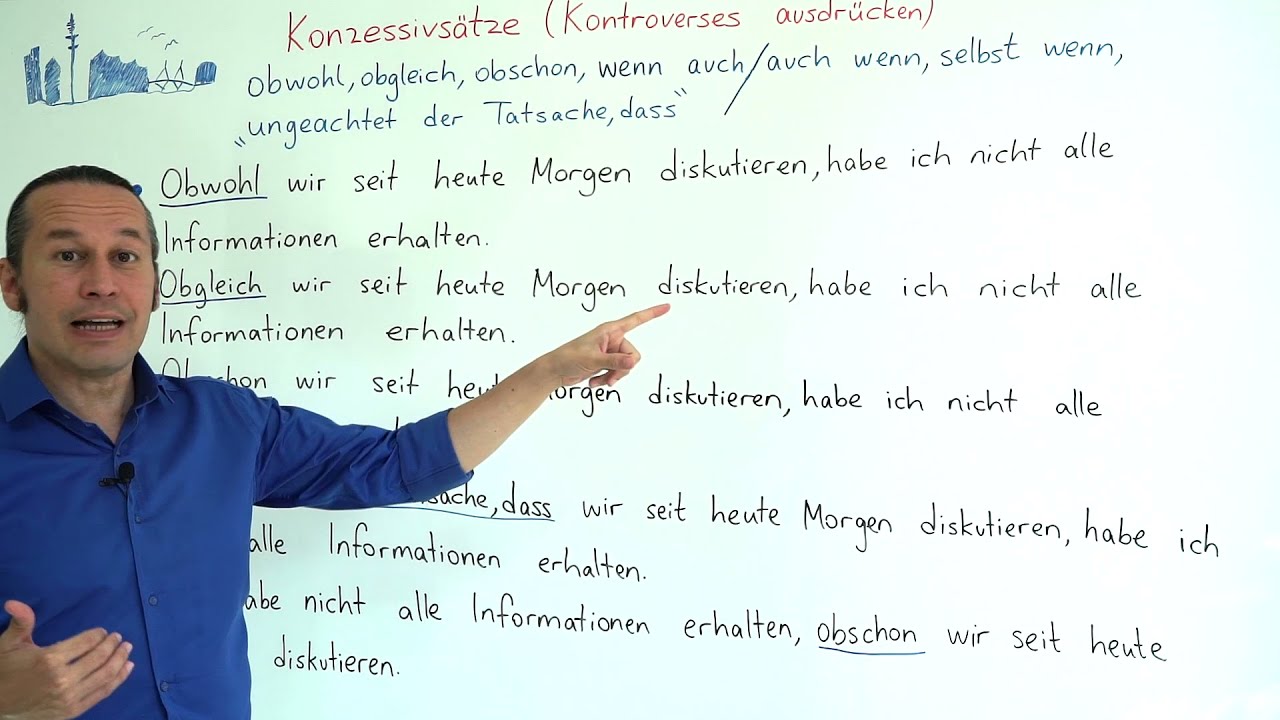 Konzessivsätze (Kontroverses ausdrücken)
obwohl, obgleich, obschon, wenn auch/auch wenn, selbst wenn,
"ungeachtet der Tatsache, dass"
Obwohl wir seit heute Morgen diskutieren, habe ich nicht alle
Informationen erhalten.
Obgleich wir seit heute Morgen diskutieren, habe ich nicht alle
Informationen erhalten.
wir seit diskutieren, habe ich nicht alle
dass wir seit heute Morgen diskutieren, habe ich
alle Informationen erhalten.
nicht alle Informationen erhalten, obschon wir seit heute
diskutieren.